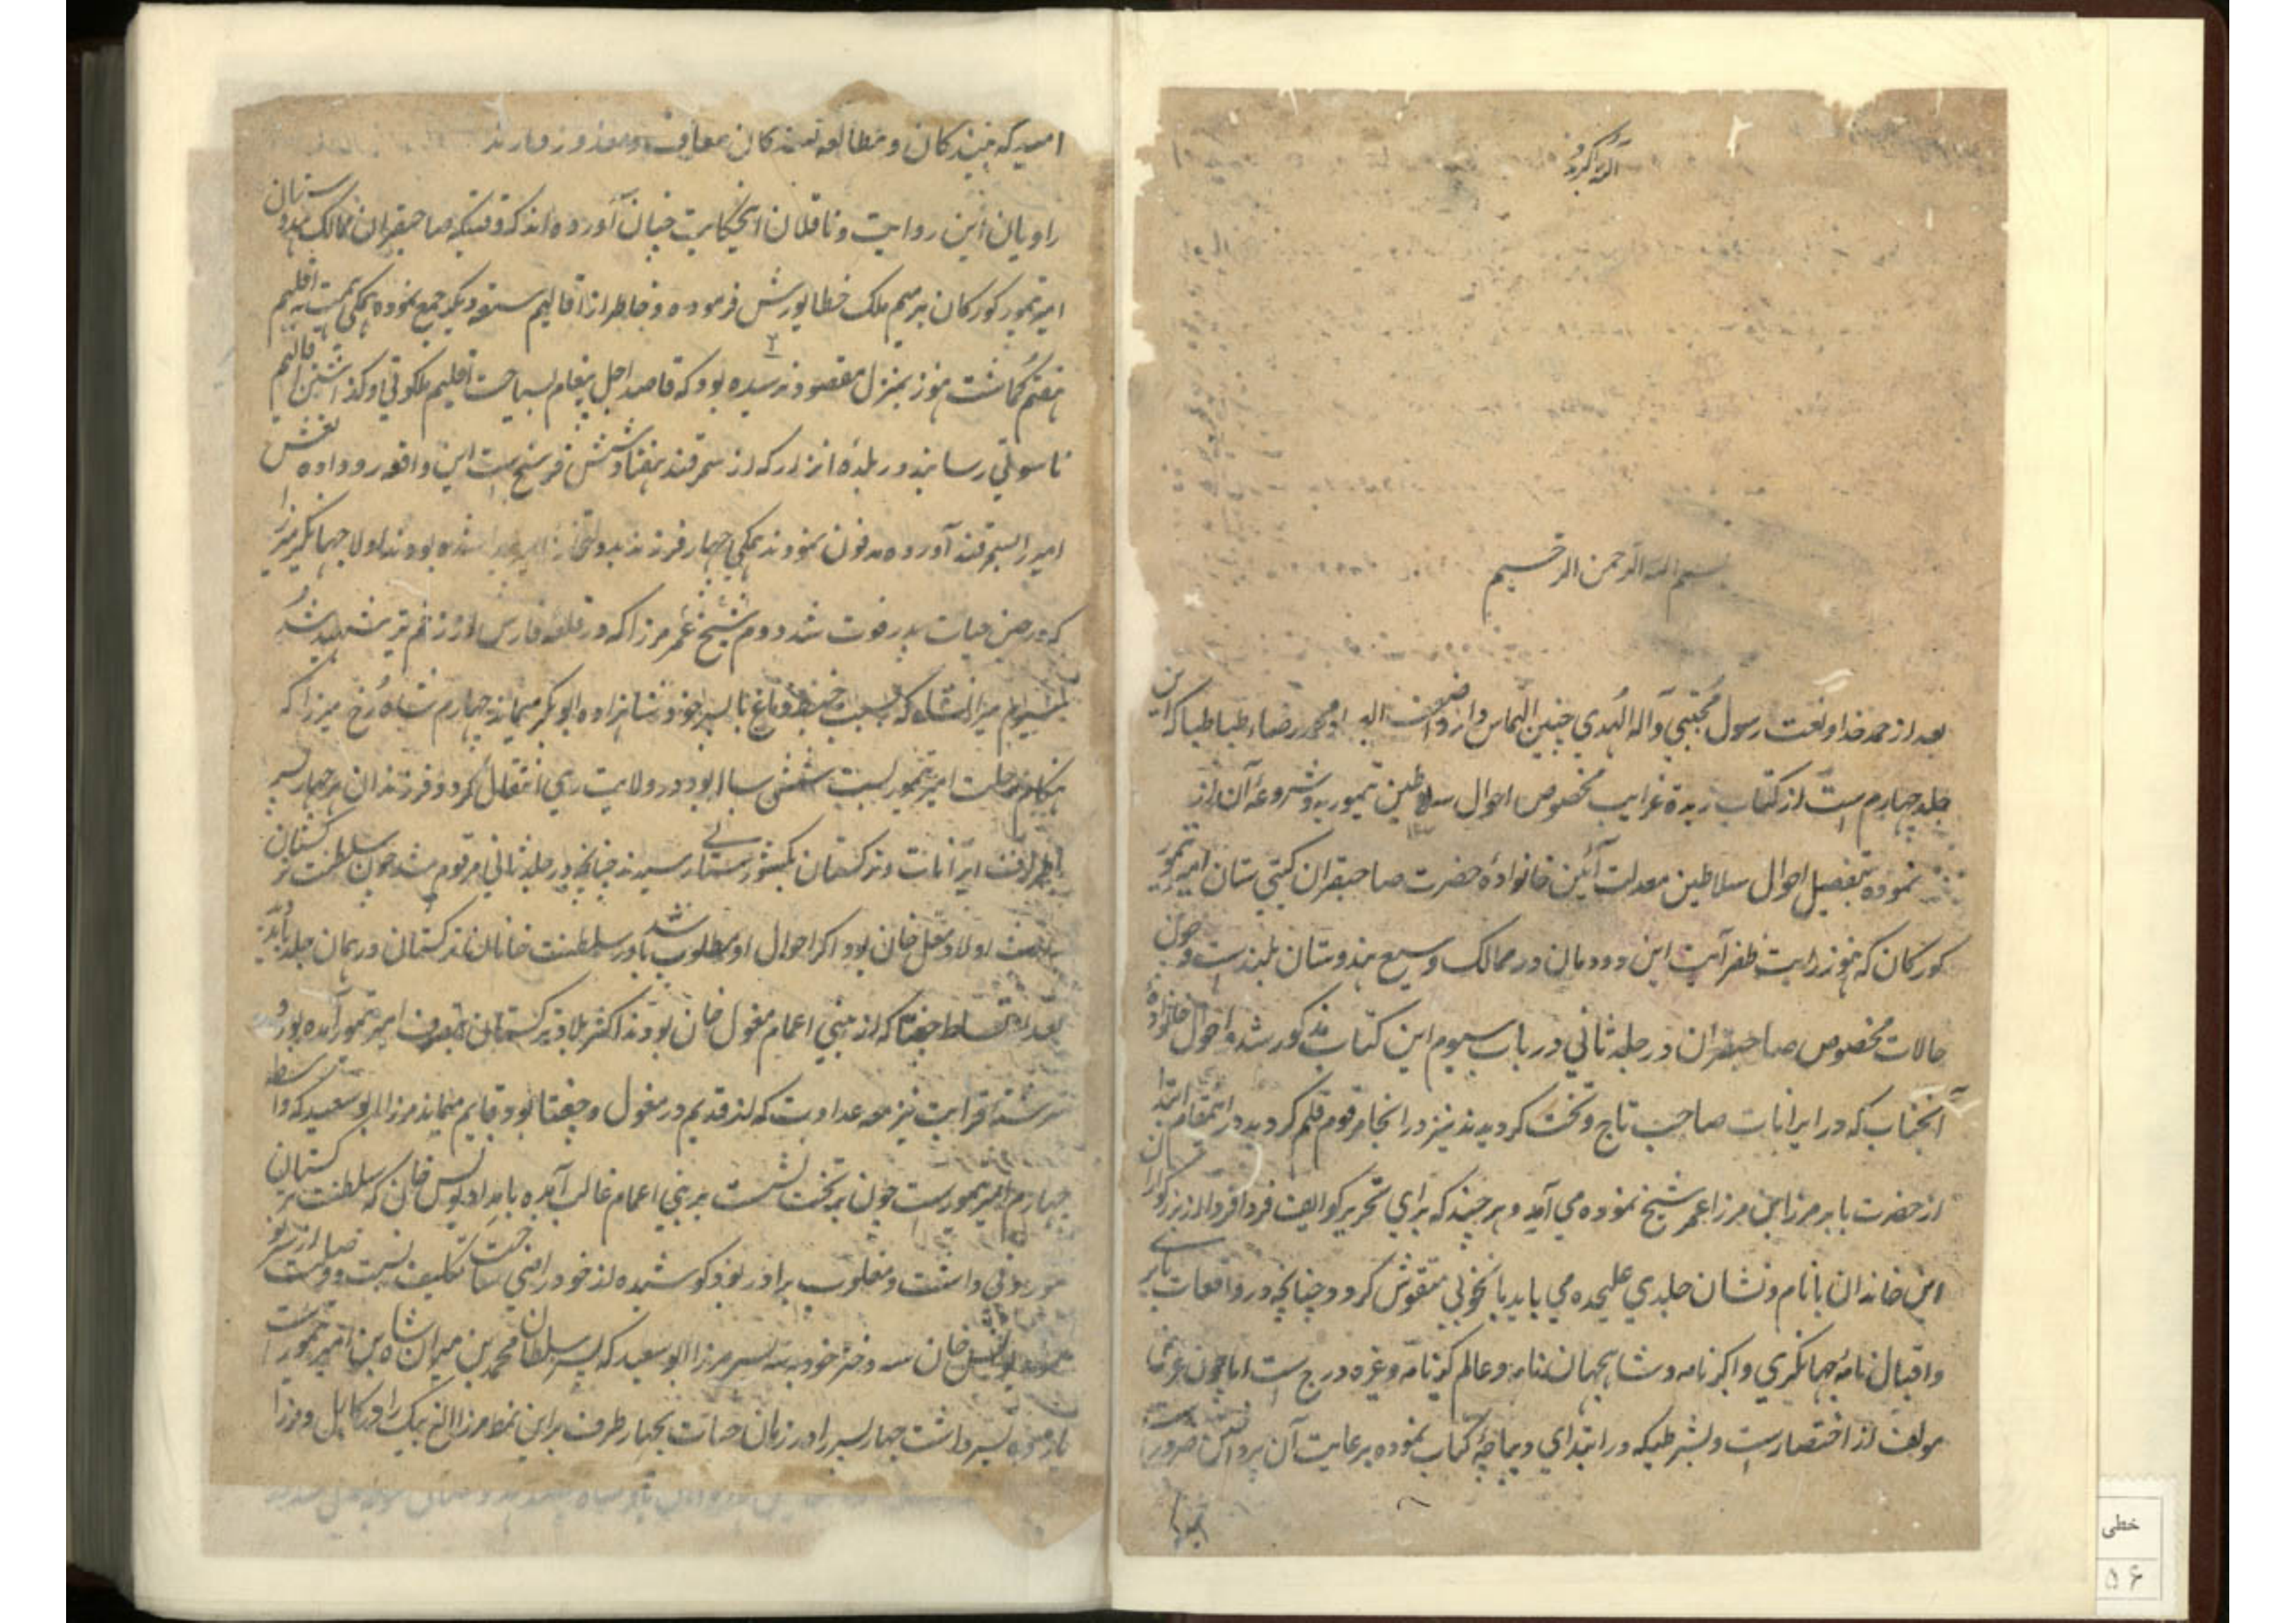 بسم الله الرحمن الرحیم
بعد از حمد خدا و نعت رسول مجتبی و آله الهدی چنین التماس دارد اضعف محمد رضاء طباطبا که این
جلد چهارم است از کتاب زبدة غرایب مخصوص احوال سلاطین تیموریه و شروعهٔ آن از
نموده بتفصیل احوال سلاطین معدلت آئین خانوادهٔ حضرت صاحبقران کیتی ستان امیر تیمور
کورکان که هنوز رایت ظفر آیت این دودمان در ممالک وسیع هندوستان بلندست و چون
حالات مخصوص صاحبقران در جلد ثانی در باب سیوم این کتاب مذکور شد و احوال خانواده
آنجناب که در ایرانات صاحب تاج و تخت کردیدند نیز در انجا مرقوم قلم کردید در اینمقام ابتدا
از حضرت بابر مرزا بن مرزا عمر شیخ نموده می آید و هر چند که برای تحریر کوایف فردا فردا از بزرکواران
این خاندان با نام و نشان جلدی علیحده می باید تا بخوبی منقوش کردد چنانچه در واقعات بابری
و اقبال نامهٔ جهانکیری و اکبرنامه و شاهجهان نامه و عالم کیرنامه و غیره درج است اما چون غرض
مولف از اختصارست و بشرطیکه در ابتدای دیباچهٔ کتاب نموده برعایت آن پرداختن ضرور
امید که بینندکان و مطالعه کنندکان معاف و معذور دارند
راویان این روایت و ناقلان این حکایت چنان آورده اند که وقتیکه صاحبقران ممالک هندوستان
امیر تیمور کورکان بر مهم ملک خطا یورش فرموده و خاطر از اقالیم سته دیکر جمع نموده همکی همت به اقلیم
هفتم کماشت هنوز بمنزل مقصود نرسیده بود که قاصد اجل پیغام بسیاحت اقلیم ملکوتی و کذاشتن اقالیم
ناسوتی رسانید در بلدهٔ اترار که از سمرقند هفتاد و شش فرسخ است این واقعه رو داده نعش
امیر را بسمرقند آورده مدفون نمودند همکی چهار فرزند شده بودند اولا جهانکیر میرزا
که در حین حیات پدر فوت شد دوم شیخ عمر مرزا که در قلعه فارس از زخم تیر شهید شد
سیوم میرانشاه که بسبب خبط دماغ با پسر خود شاهزاده ابوبکر میماند چهارم شاه رخ میرزا که
هنکام رحلت امیر تیمور بسبت شش سال بود در ولایت ری انتقال کرد و فرزندان هر چهار پسر
باطراف ایرانات و ترکستان بکشورستانی رسیدند چنانچه در جلد ثانی مرقوم شد چون سلطنت ترکستان
اولاد مغل خان بود اکر احوال او مطلوب باشد در سلطنت خانان ترکستان در همان جلد باید دید
بعد از تسلط چغتا که از بنی اعمام مغول خان بودند اکثر بلاد ترکستان بتصرف امیر تیمور آمده بود و
سررشته قرابت نیز مع عداوت که از قدیم در مغول و چغتا بود قایم میماند مرزا ابو سعید که واسطه
چهارم امیر تیمورست چون بر تخت نشست بر بنی اعمام غالب آمده بامداد یونس خان که سلطنت ترکستان
موروثی داشت و مغلوب برادر بود کوشیده از خود راضی ساخت
یونس خان سه دختر خود به سه پسر مرزا ابو سعید که پسر سلطان محمد بن میران شاه بن امیر تیمورست
یازده پسر داشت چهار پسر را در زمان حیات بچهار طرف براین نمط مرزا الغ بیک را در کابل و مرزا